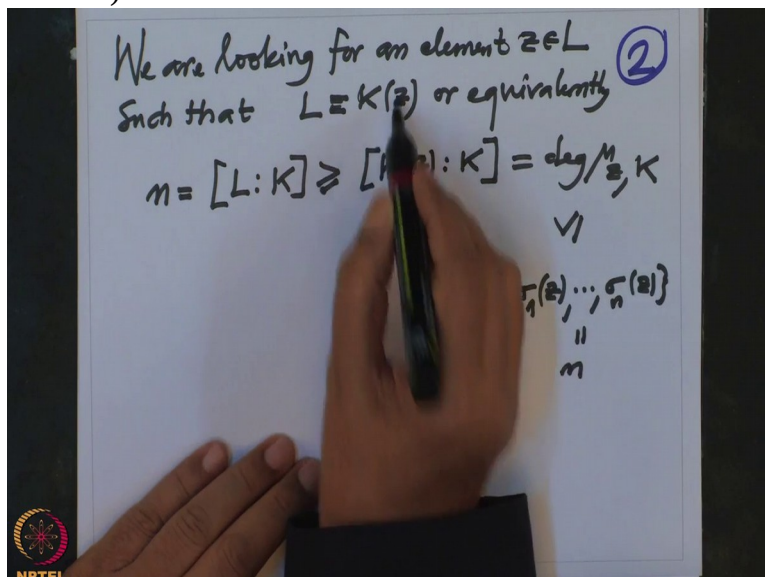 We are looking for an element z∈L
Such that L = K(z) or equivalently
2
n = [L : K] ⩾ [K : K] = deg μz, K
VI
σ1(z), ..., σn(z)}
||
n
NPTEL